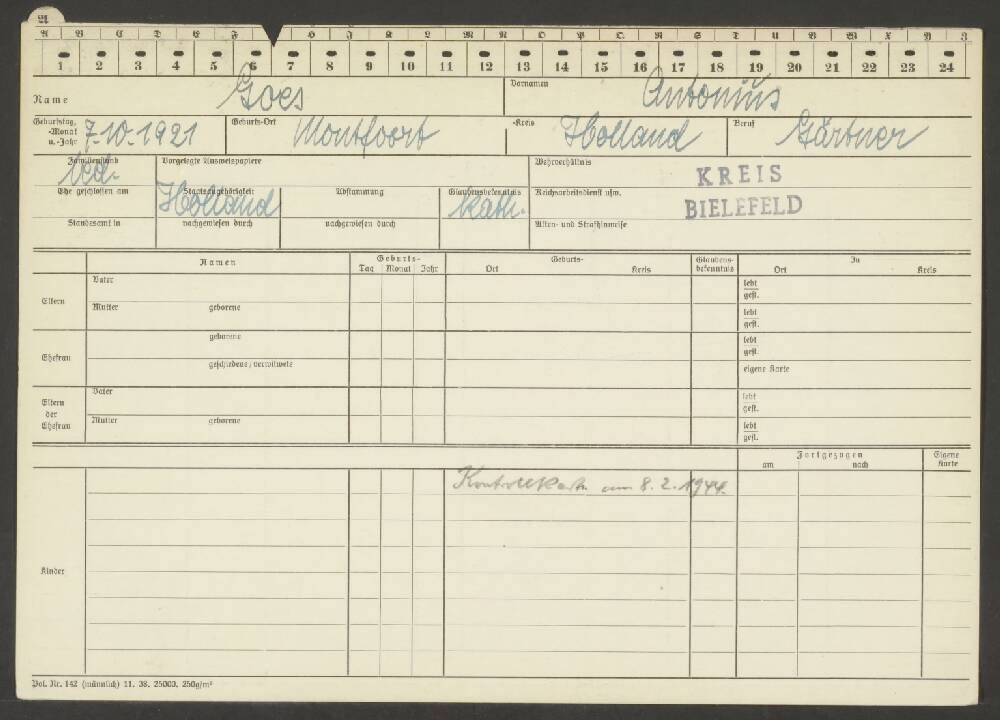 A
A B C D E F H J K L M N O P Q R S T U V W X Y Z
1 2 3 4 5 6 7 8 9 10 11 12 13 14 15 16 17 18 19 20 21 22 23 24
Name Goes Vornamen Antonius
Geburtstag, -Monat u. -Jahr 7.10.1921 Geburts-Ort Montfoort -Kreis Holland Beruf Gärtner
Familienstand led. Vorgelegte Ausweispapiere Wehrverhältnis KREIS
Ehe geschlossen am Staatsangehörigkeit Holland Abstammung Glaubensbekenntnis Kath. Reichsarbeitsdienst usw. BIELEFELD
Standesamt in nachgewiesen durch nachgewiesen durch Akten- und Strafhinweise
Namen Geburts- Geburts- Glaubens- In
Tag Monat Jahr Ort Kreis bekenntnis Ort Kreis
Eltern Vater lebt
gest.
Mutter geborene lebt
gest.
Ehefrau geborene lebt
gest.
geschiedene, verwitwete eigene Karte
Eltern der Ehefrau Vater lebt
gest.
Mutter geborene lebt
gest.
Fortgezogen Eigene
am nach Karte
Kontrollkarte am 8.2.1944.
Kinder
Pol. Nr. 142 (männlich) 11. 38. 25000. 250g/m²